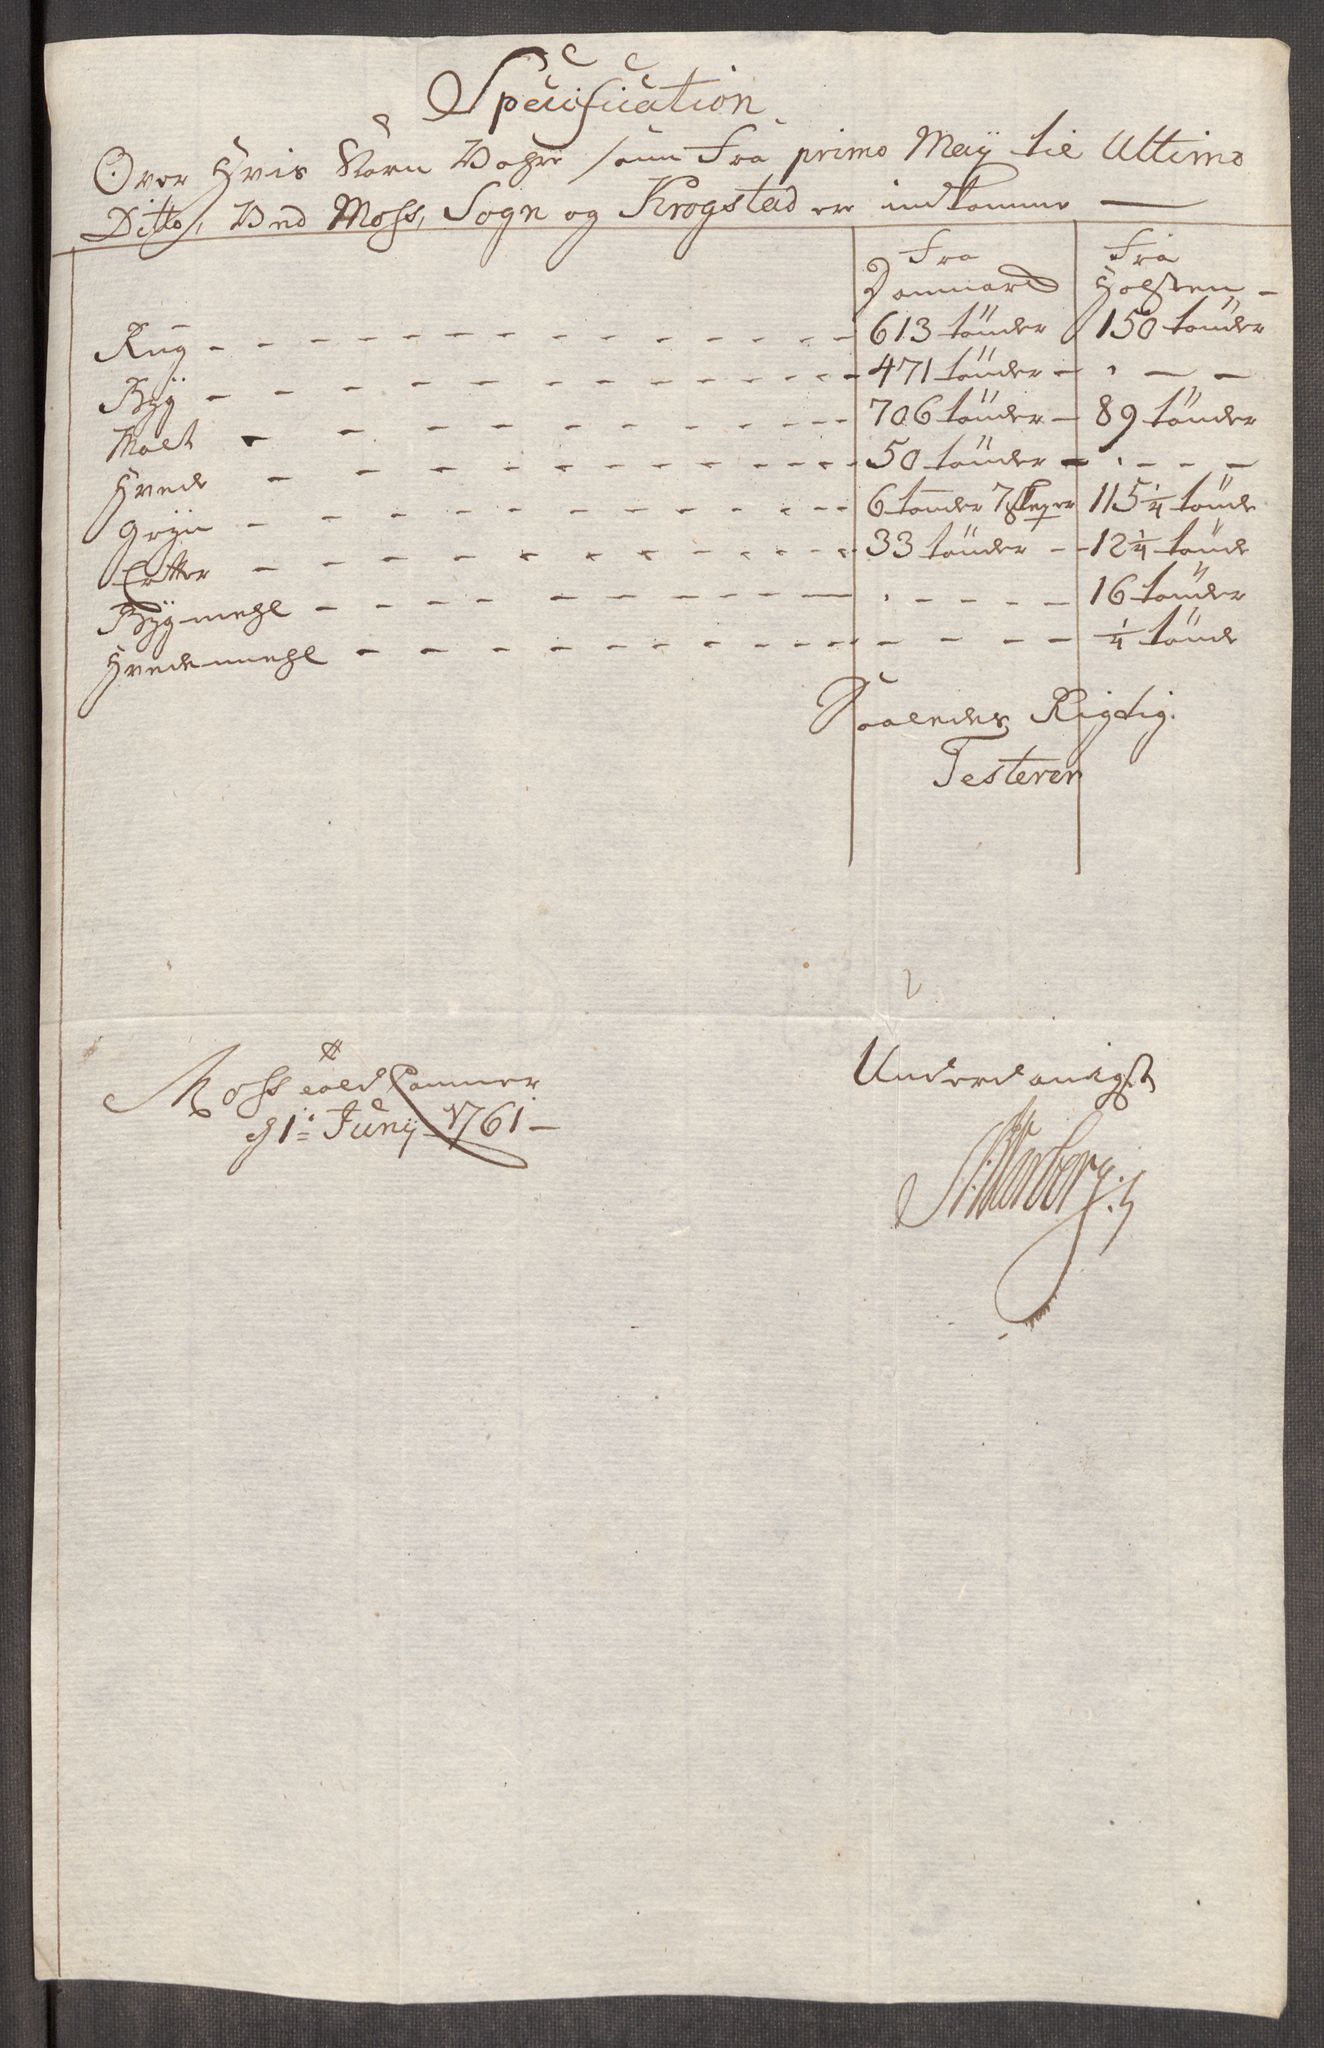 Specification
Over Hvis Korn Vahre som Fra primo Maÿ til Ultimo
Ditto, Ved Moss, Sogn og Krogstad ere indkomne
Fra Danmarck
Fra Holsten
Rug 613 tönder 150 tönder
Byg 471 tönder
Malt 706 tönder 89 tönder
Hvede 50 tönder
Gryn 6 tönder 7 skeper 115 1/4 tönde
Ertter 33 tönder 12 1/4 tönde
Byg mehl 16 tönder
Hvede mehl 1/4 tönde
Saaledes Rigtig
Testerer
Moss told Cammer
d 1: Junÿ 1761
Underdanigst
Warberg